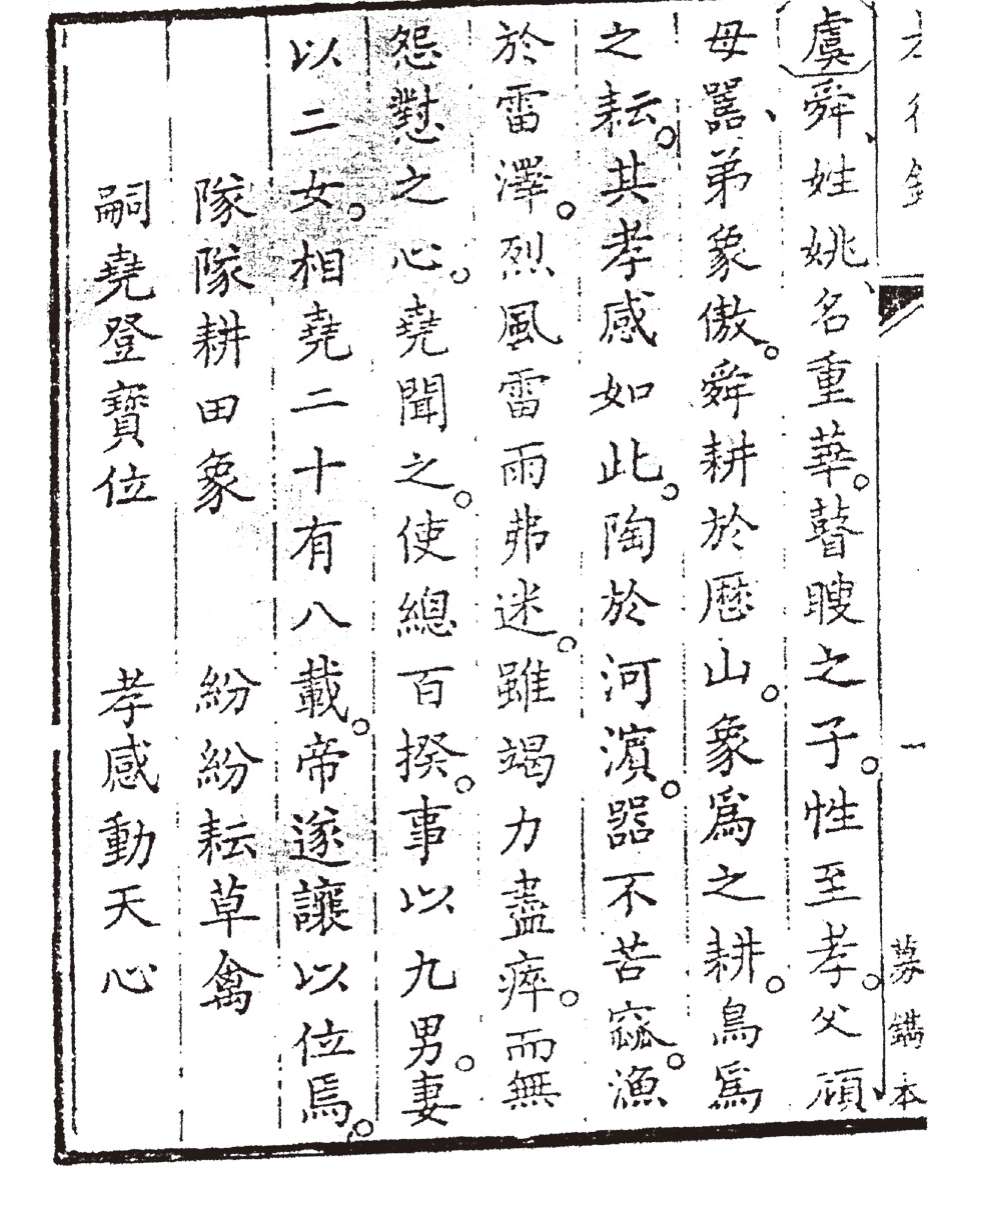 虞舜、姓姚、名重華。瞽瞍之子。性至孝。父頑、
母嚚、弟象傲。舜耕於厯山。象爲之耕。鳥爲
之耘。其孝感如此。陶於河濱。器不苦窳。漁
於雷澤。烈風雷雨弗迷。雖竭力盡瘁。而無
怨懟之心。堯聞之。使總百揆。事以九男。妻
以二女。相堯二十有八載。帝遂讓以位焉。
隊隊耕田象 紛紛耘草禽
嗣堯登寶位 孝感動天心